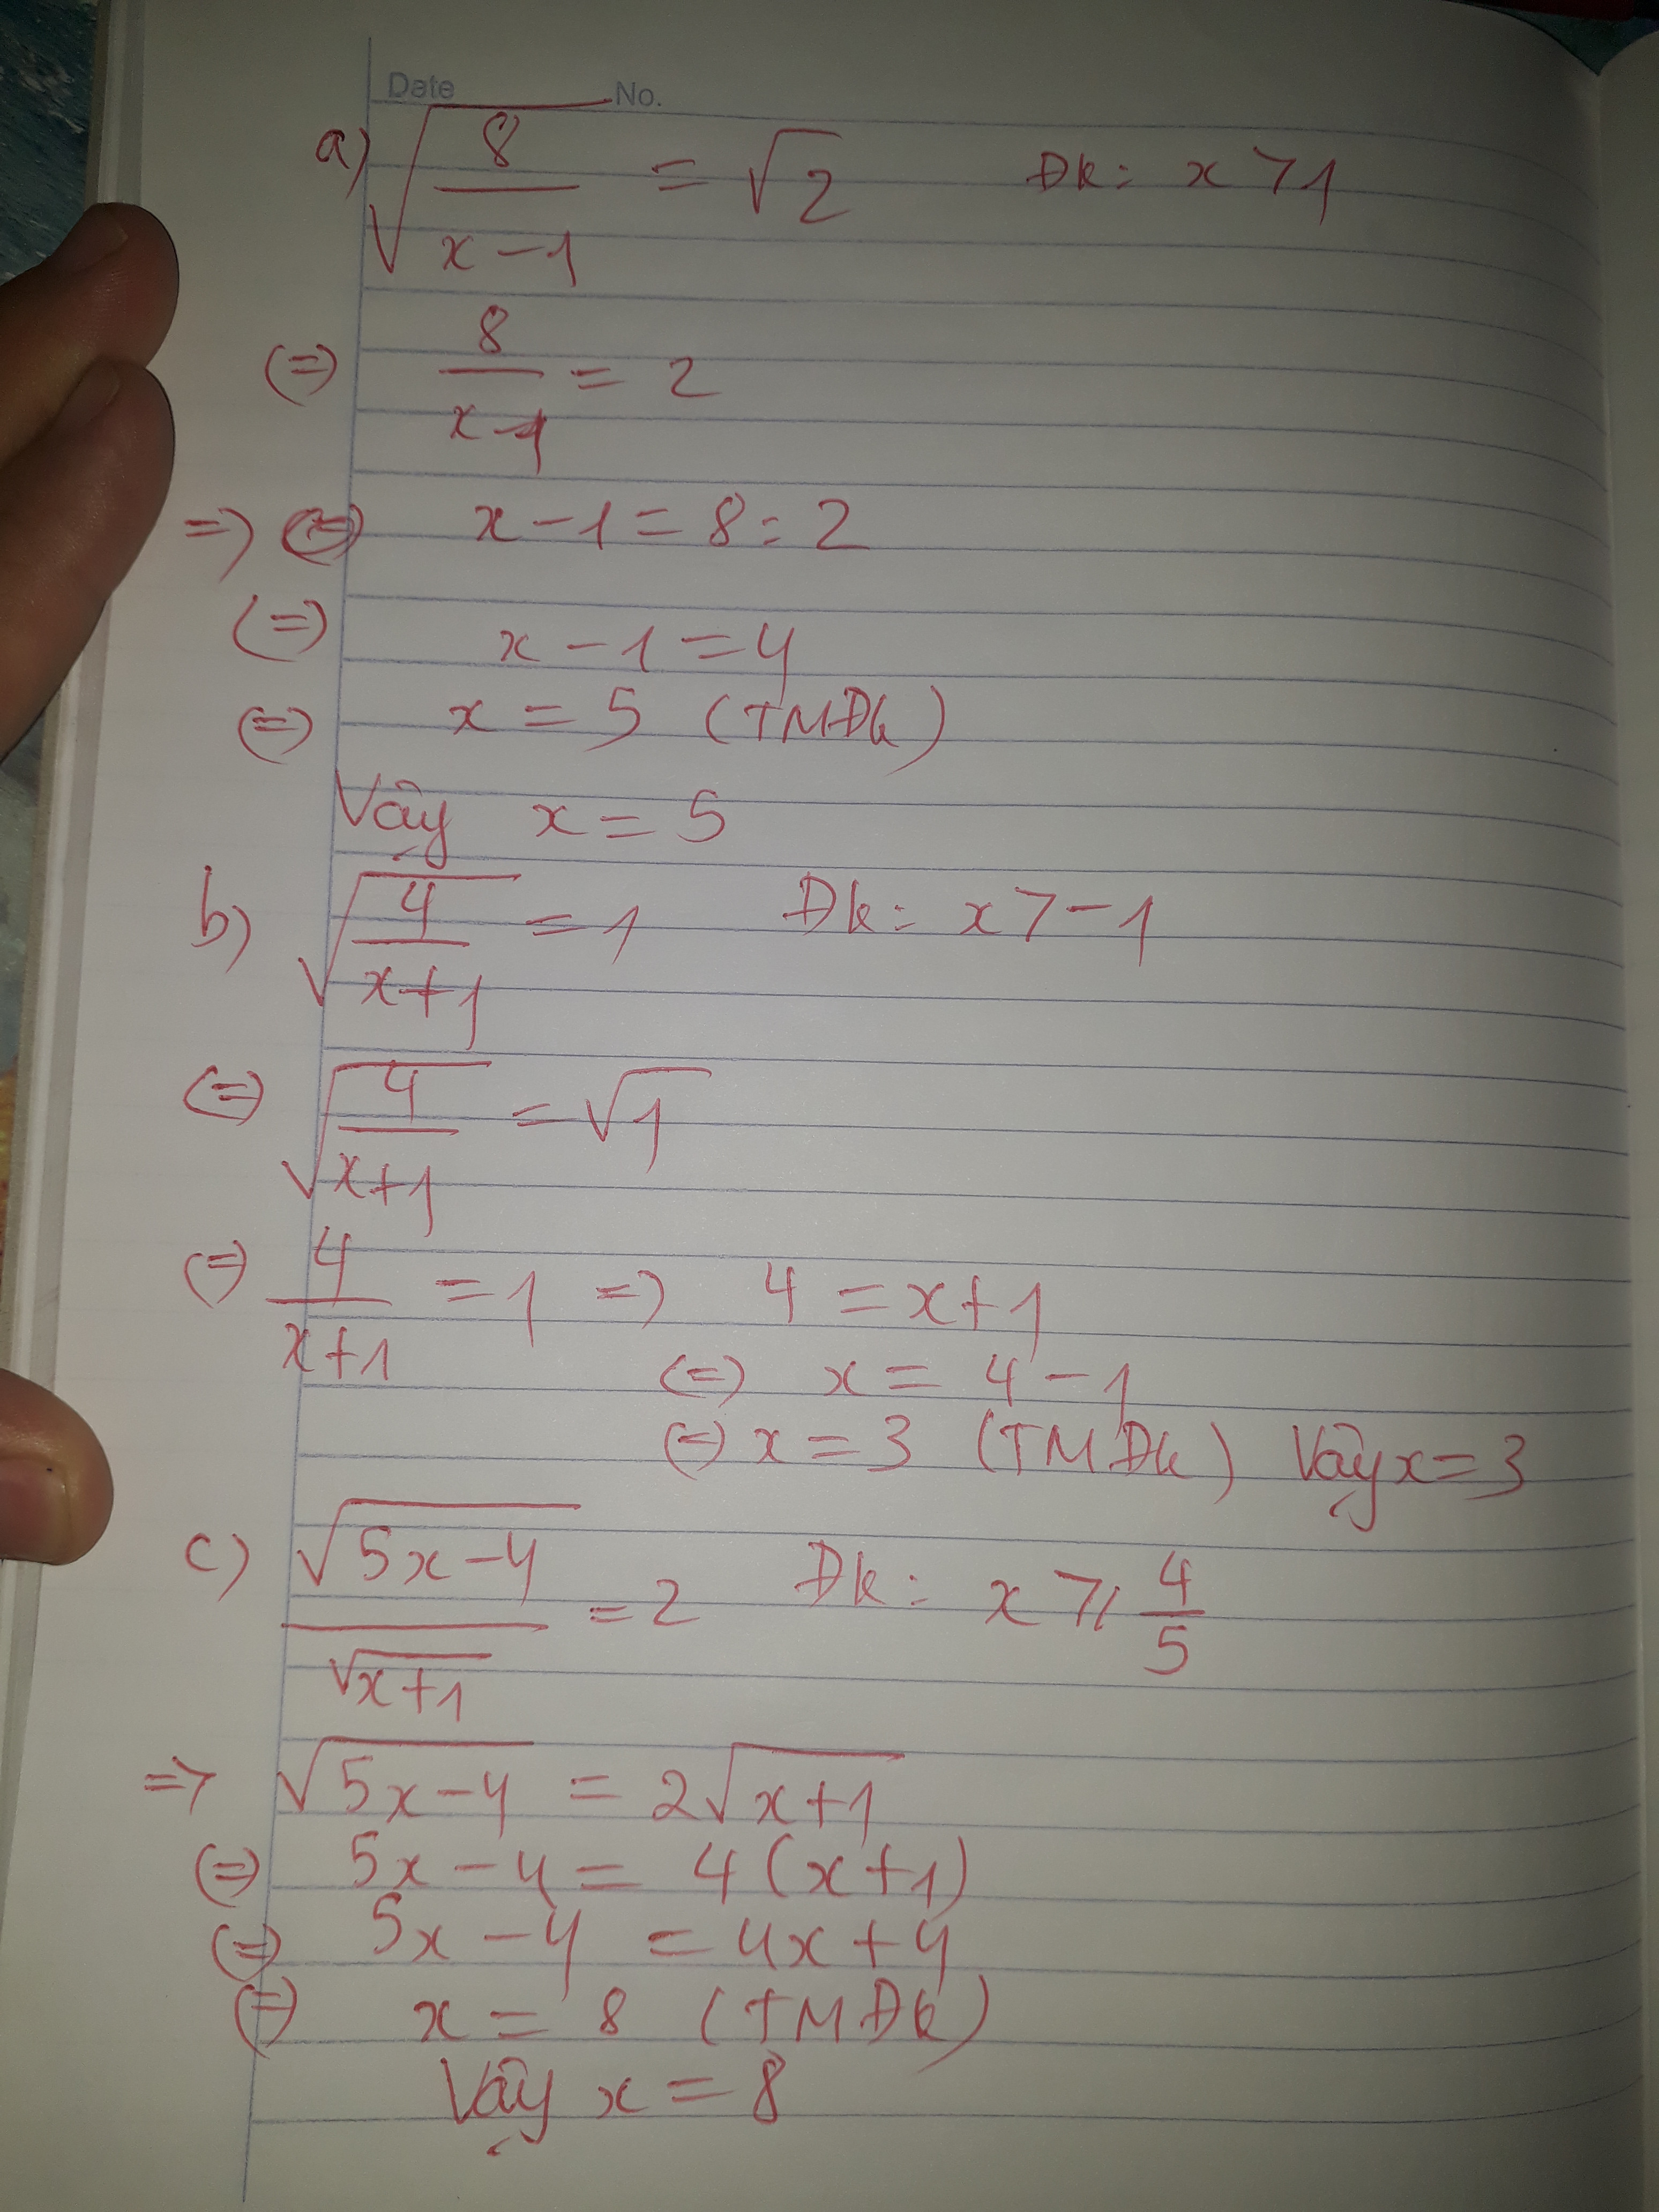 Date No.
a) √(8/(x-1)) = √2 Đk: x > 1
(=) 8/(x-1) = 2
=) (=) x - 1 = 8 : 2
(=) x - 1 = 4
(=) x = 5 (TMĐk)
Vậy x = 5
b) √(4/(x+1)) = 1 Đk: x > -1
(=) √(4/(x+1)) = √1
(=) 4/(x+1) = 1 =) 4 = x+1
(=) x = 4 - 1
(=) x = 3 (TMĐk) Vậy x = 3
c) √(5x-4)/√(x+1) = 2 Đk: x ⩾ 4/5
=> √(5x-4) = 2√(x+1)
(=) 5x - 4 = 4(x+1)
(=) 5x - 4 = 4x + 4
(=) x = 8 (TMĐk)
Vậy x = 8